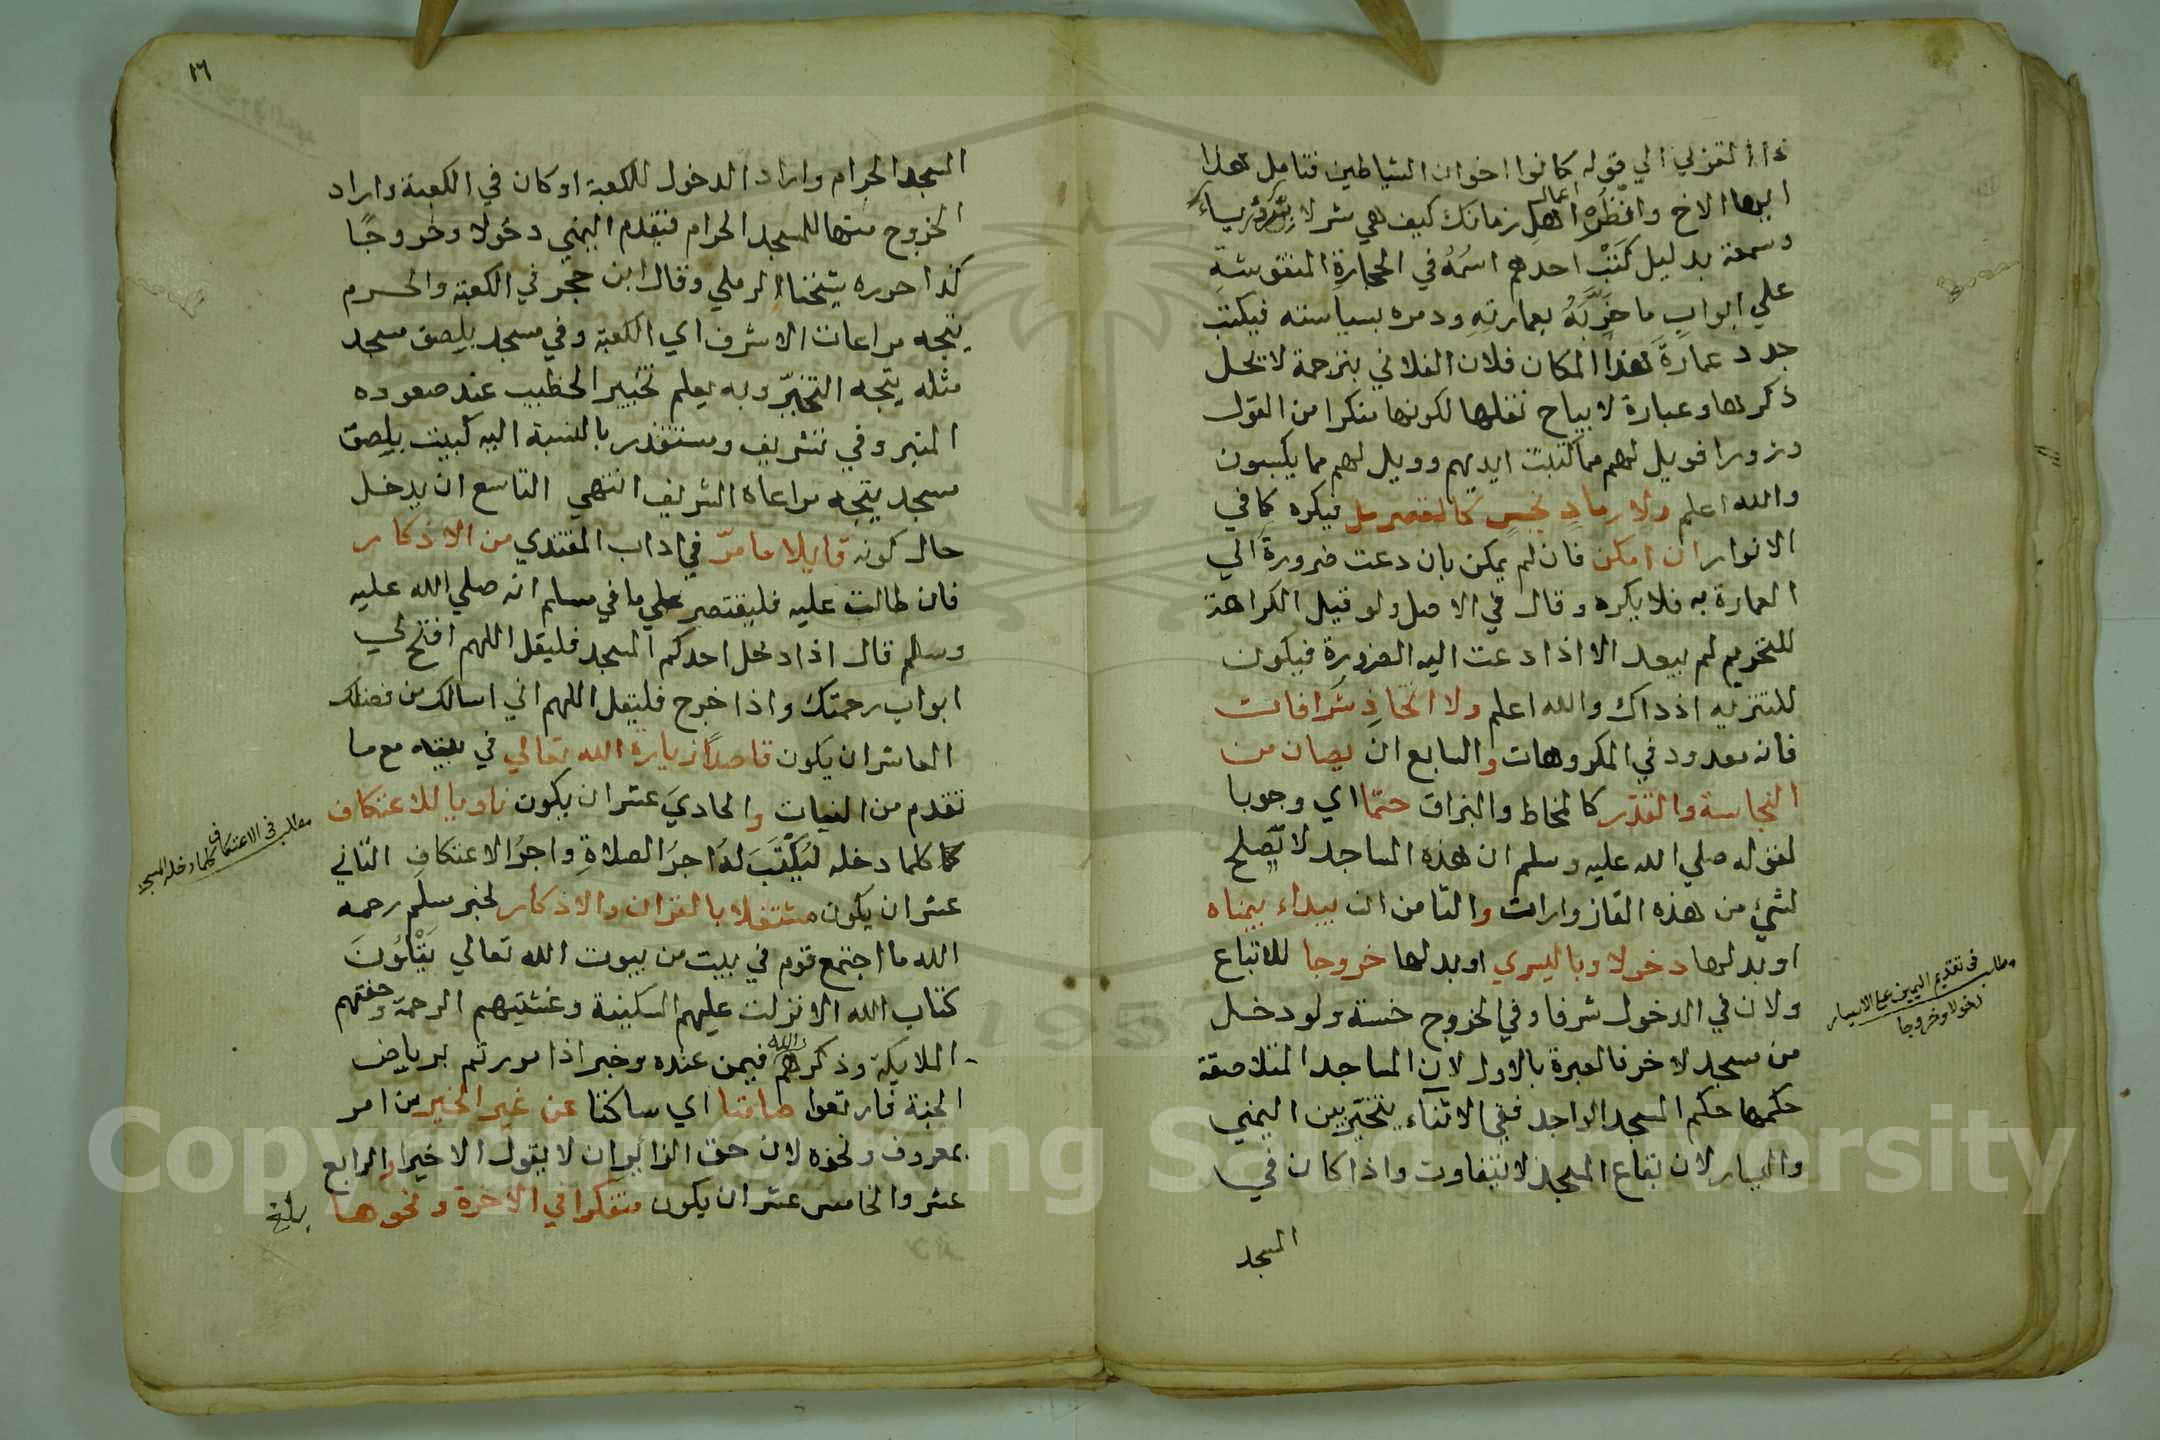 ذا القربي الي قوله كانوا اخوان الشياطين فتامل هذا
ايها الاخ وانظر اعمال اهل زمانك كيف هي شرلا رياء
وسمعة بدليل كتب احدهم اسمه في الحجارة المنقوشة
علي ابواب ما خربه بعمارته ودمره بسياسته فيكتب
جدد عمارة هذا المكان فلان الفلاني بترجمة لا تحل
ذكرها وعبارة لا يباح نقلها لكونها منكرا من القول
وزورا فويل لهم مما كتبت ايديهم وويل لهم مما يكسبون
والله اعلم ولا رماد نجس كالقصرمل فيكره كما في
الانوار ان امكن فان لم يمكن بان دعت ضرورة الي
العمارة به فلا يكره وقال في الاصل ولو قيل الكراهة
للتحريم لم يبعد الا اذا دعت اليه الضرورة فيكون
للتنزيه اذ ذاك والله اعلم ولا اتخاذ شرافات
فانه معدود في المكروهات والسابع ان يصان من
النجاسة والقذر كالمخاط والبزاق حتما اي وجوبا
لقوله صلي الله عليه وسلم ان هذه المساجد لا تصلح
لشيء من هذه القاذورات والثامن ان يبداء بيمناه
او بدلها دخولا وباليسري او بدلها خروجا للاتباع
ولان في الدخول شرفا وفي الخروج خسة ولو دخل
من مسجد لاخر فالعبرة بالاول لان المساجد المتلاصقة
حكمها حكم المسجد الواحد ففي الاثناء يتخير بين اليمني
واليسار لان بقاع المسجد لا تتفاوت واذا كان في
المسجد
مطلب في تقديم اليمين علي الايسار
دخولا وخروجا
١٦
المسجد الحرام واراد الدخول للكعبة او كان في الكعبة واراد
الخروج منها للمسجد الحرام فيقدم اليمني دخولا وخروجا
كذا حرره شيخنا الرملي وقال ابن حجر في الكعبة والحرم
يتجه مراعات الاشرف اي الكعبة وفي مسجد بلصق مسجد
مثله يتجه التخير وبه يعلم تخيير الخطيب عند صعوده
المنبر وفي شريف ومستقذر بالنسبة اليه كبيت بلصق
مسجد يتجه مراعاة الشريف انتهي التاسع ان يدخل
حال كونه قايلا ما مر في اداب المقتدي من الاذكار
فان طالت عليه فليقتصر علي ما في مسلم انه صلي الله عليه
وسلم قال اذا دخل احدكم المسجد فليقل اللهم افتح لي
ابواب رحمتك واذا خرج فليقل اللهم اني اسالك من فضلك
العاشر ان يكون قاصدا زيارة الله تعالي في بيته مع ما
تقدم من النيات والحادي عشر ان يكون ناويا للاعتكاف
كلما دخله ليكتب له اجر الصلاة واجر الاعتكاف الثاني
عشر ان يكون مشتغلا بالقران والاذكار لخبر مسلم رحمه
الله ما اجتمع قوم في بيت من بيوت الله تعالي يتلون
كتاب الله الا نزلت عليهم السكينة وغشيتهم الرحمة وحفتهم
الملايكة وذكرهم الله فيمن عنده وخبر اذا مررتم برياض
الجنة فارتعوا صامتا اي ساكتا عن غير الخير من امر
بمعروف ونحوه لان حق الزائر ان لا يقول الا خيرا والرابع
عشر والخامس عشر ان يكون متفكرا في الاخرة ونحوها
بلغ
مطلب في الاعتكاف
كلما دخل المسجد
Copyright © King Saud University
1957